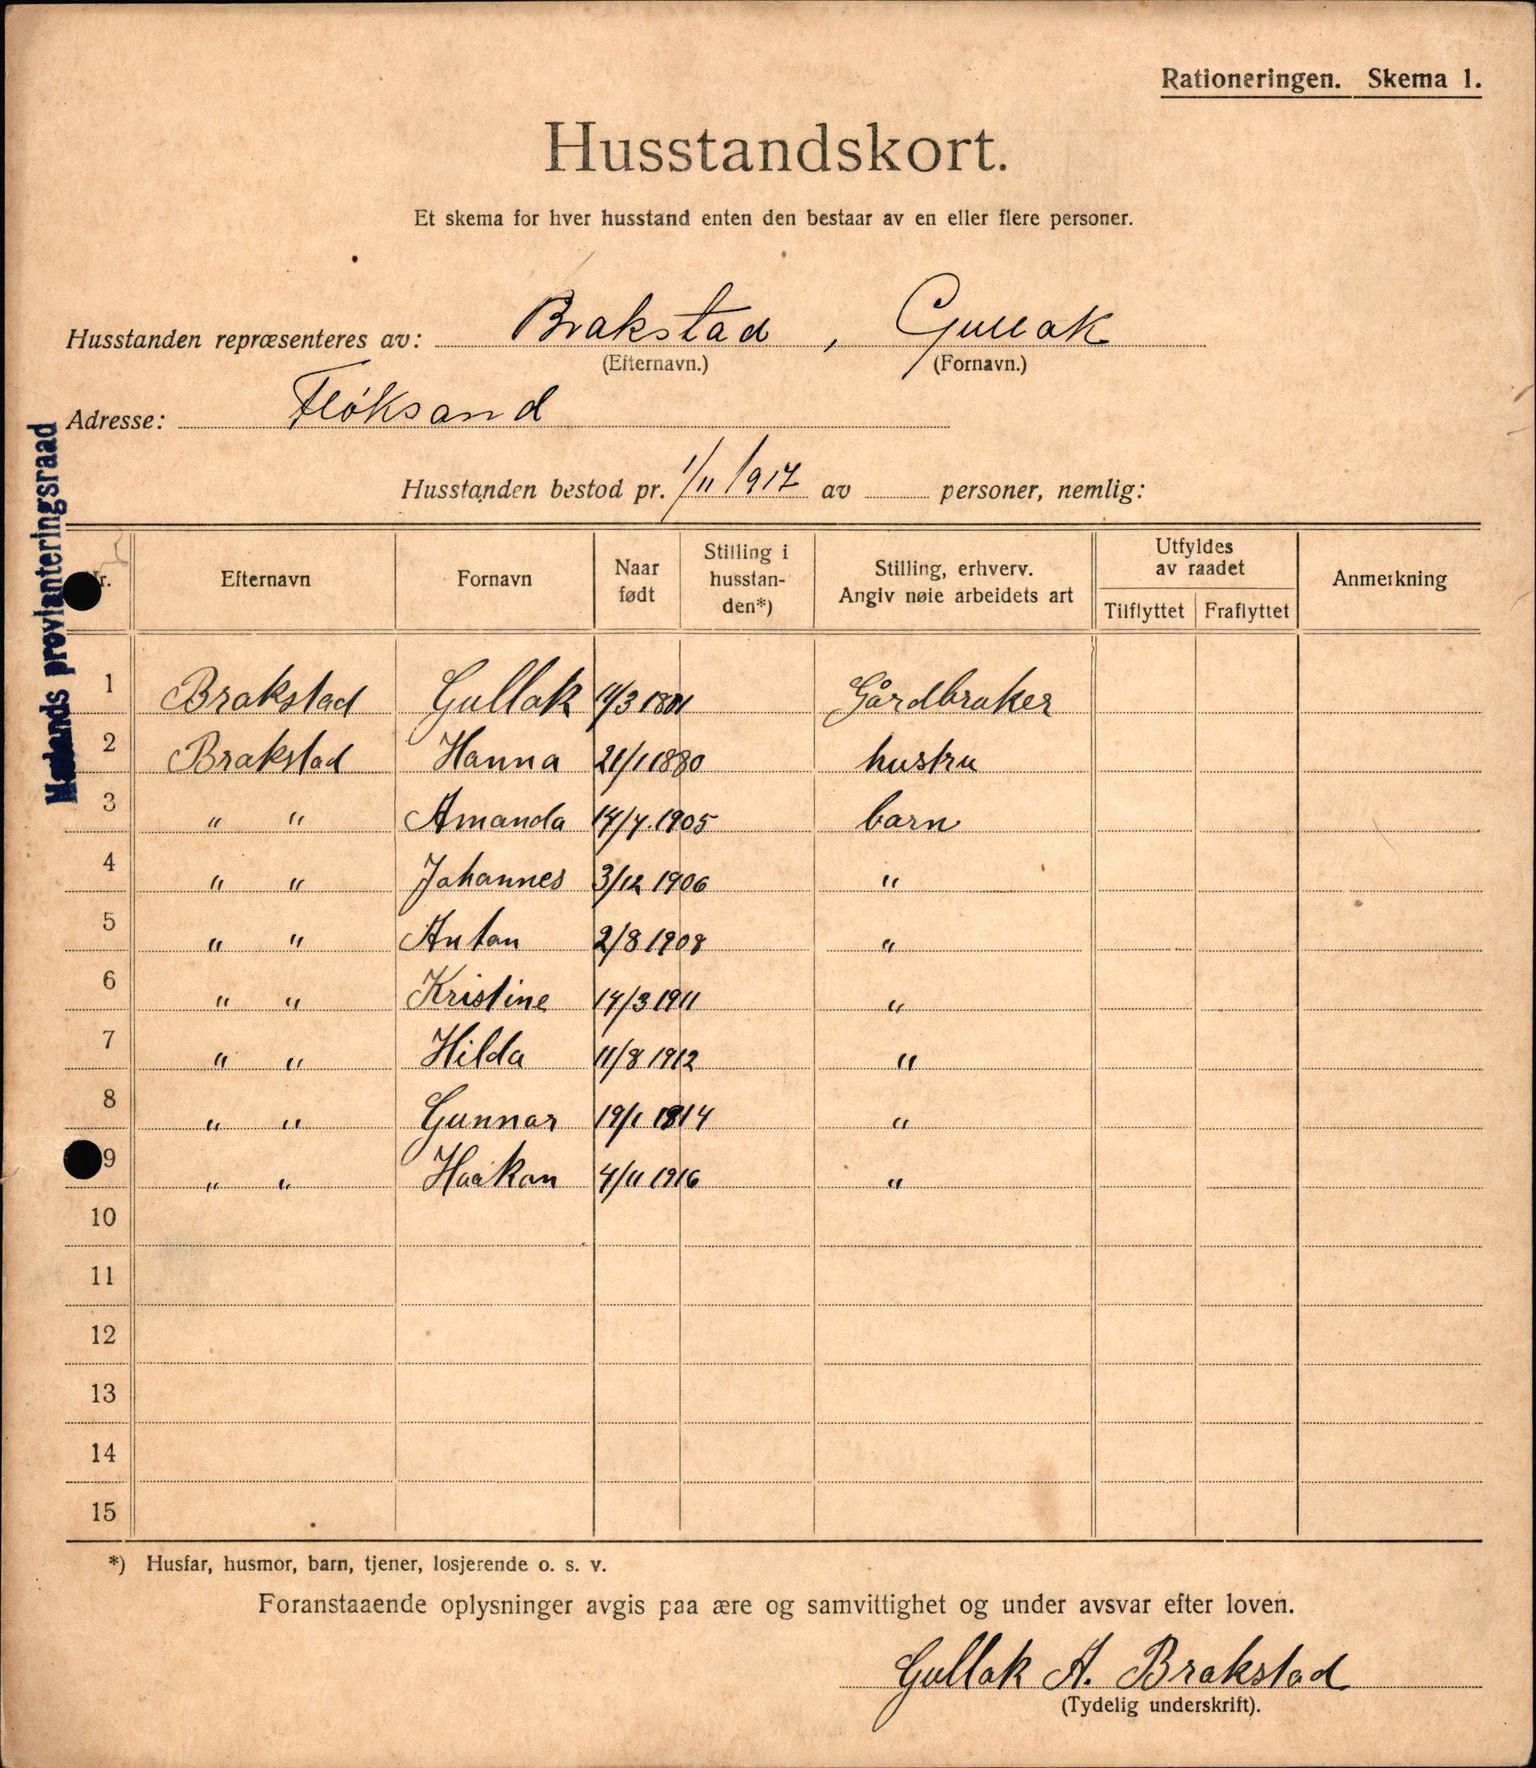 Rationeringen. Skema 1.
Husstandskort.
Et skema for hver husstand enten den bestaar av en eller flere personer.
Husstanden repræsenteres av: Brakstad, Gullak
(Efternavn.) (Fornavn.)
Adresse: Fløksand
Husstanden bestod pr. 1/11 1917 av personer, nemlig:
provianteringsraad
Nr. Efternavn Fornavn Naar født Stilling i husstan-den*) Stilling, erhverv. Angiv nøie arbeidets art Utfyldes av raadet Tilflyttet Fraflyttet Anmerkning
1 Brakstad Gullak Gårdbruker
2 Brakstad Hanna 21/1 1880 hustru
3 " " Amanda 1905 barn
4 " " Johannes 3/12 1906 "
5 " " Anton 2/8 1908 "
6 " " Kristine 14/3 1911 "
7 " " Hilda 11/8 1912 "
8 " " Gunnar 19/1 1914 "
9 " " Haakon 4/11 1916 "
10
11
12
13
14
15
*) Husfar, husmor, barn, tjener, losjerende o. s. v.
Foranstaaende oplysninger avgis paa ære og samvittighet og under avsvar efter loven.
Gullak A. Brakstad
(Tydelig underskrift).